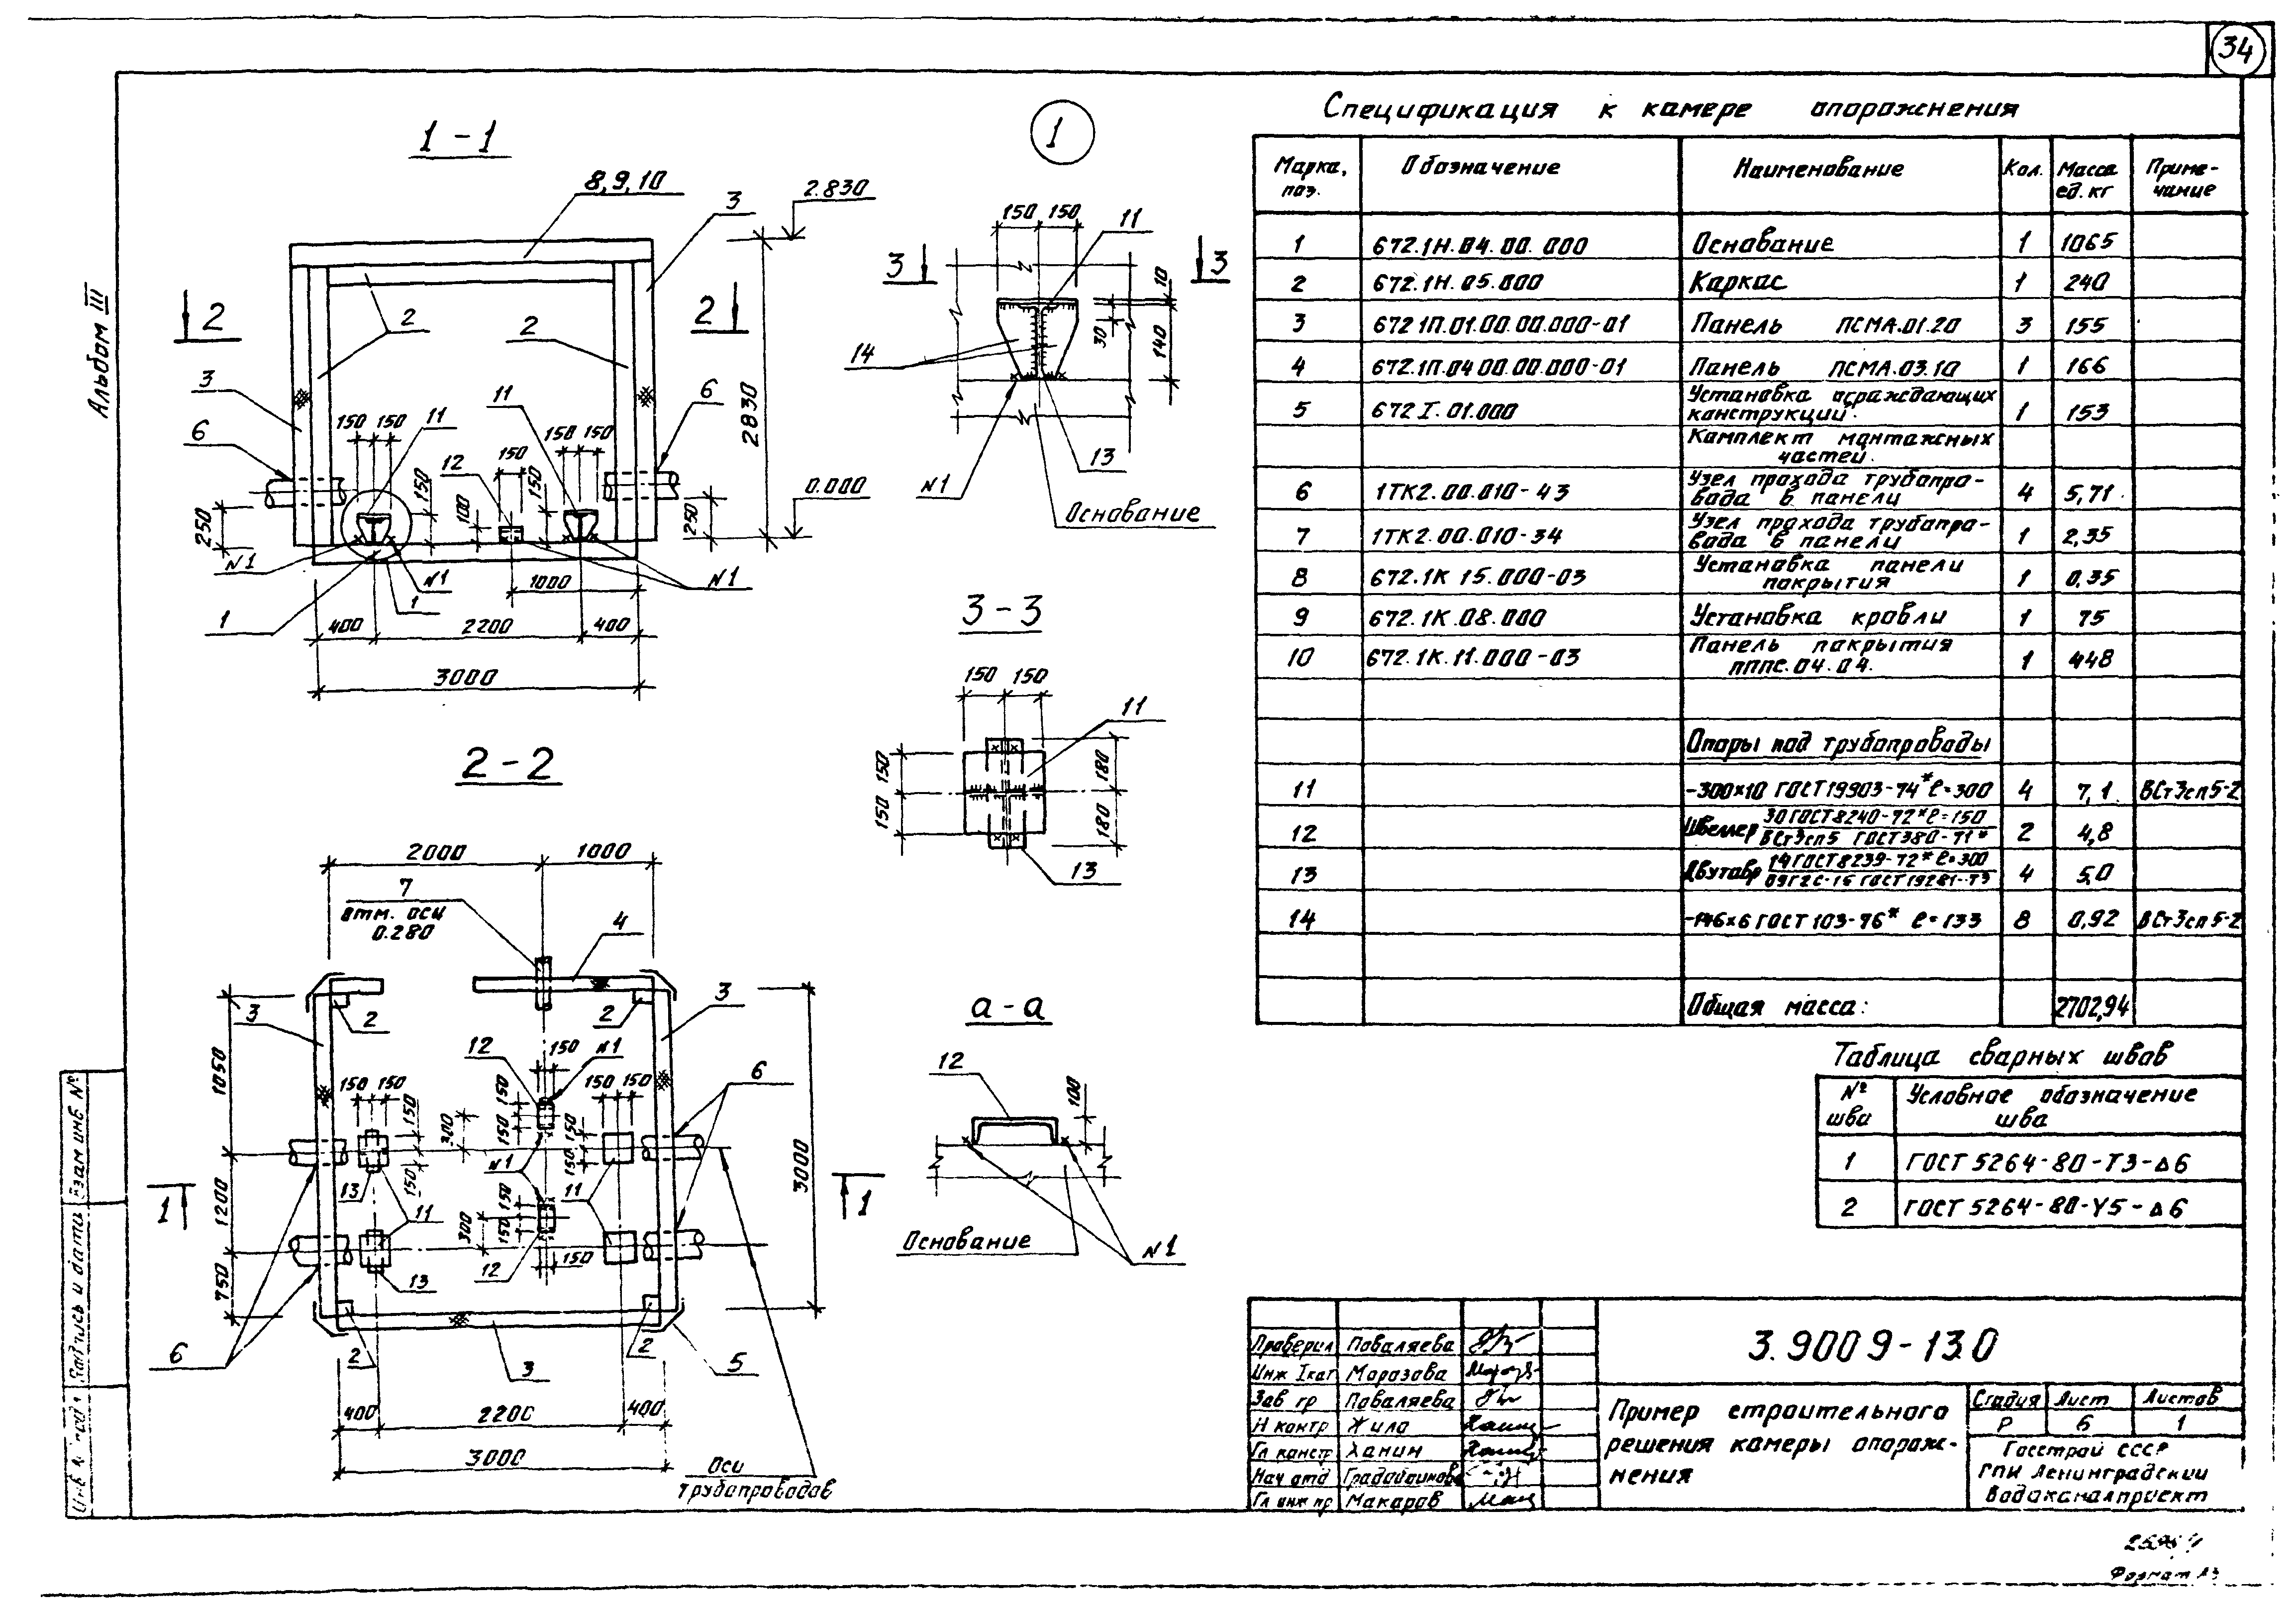 34
Альбом III
1-1
8,9,10
3
2.830
2
2
2
2
3
6
11
11
6
12
150 150
150
150 150
150
150
100
250
250
2830
0.000
N1
N1
N1
1000
1
1
400
2200
400
3000
1
150 150
11
3
3
10
30
140
14
N1
13
Основание
3-3
150 150
11
150
150
180
180
13
2-2
2000
1000
7
отм. оси
0.280
4
3
3
2
2
12
150
N1
6
1050
150 150
150 150
150
150
150
150
300
150
150
3000
13
N1
11
11
1
1
1200
300
150
150
750
13
12
150
6
2
3
2
5
400
2200
400
3000
Оси
трубопроводов
а-а
12
100
Основание
N1
Спецификация к камере опорожнения
Марка, поз. Обозначение Наименование Кол. Масса ед. кг Приме-чание
1 672.1Н.04.00.000 Основание 1 1065
2 672.1Н.05.000 Каркас 1 240
3 672 1П.01.00.00.000-01 Панель ПСМА.01.20 3 155
4 672.1П.04 00.00.000-01 Панель ПСМА.03.10 1 166
5 672 I.01.000 Установка ограждающих конструкций. 1 153
Комплект монтажных
частей.
6 1ТК2.00.010-43 Узел прохода трубопро-вода в панели 4 5,71
7 1ТК2.00.010-34 Узел прохода трубопро-вода в панели 1 2,35
8 672.1К 15.000-03 Установка панели покрытия 1 0,35
9 672.1К.08.000 Установка кровли 1 75
10 672.1К.11.000-03 Панель покрытия ПППС.04.04. 1 448
Опоры под трубопроводы
11 -300×10 ГОСТ 19903-74* ℓ=300 4 7,1 ВСт3сп5-2
12 Швеллер 30 ГОСТ 8240-72* ℓ=150 ВСт3сп5 ГОСТ 380-71* 2 4,8
13 Двутавр 14 ГОСТ 8239-72* ℓ=300 09Г2С-15 ГОСТ 19281-73 4 5,0
14 -146×6 ГОСТ 103-76* ℓ=133 8 0,92 ВСт3сп5-2
Общая масса: 2702,94
Таблица сварных швов
№ шва Условное обозначение шва
1 ГОСТ 5264-80-Т3-Δ6
2 ГОСТ 5264-80-У5-Δ6
Проверил Поваляева
Инж I кат Морозова
Зав гр Поваляева
Н контр Жила
Гл констр Ханин
Нач отд
Гл инж пр Макаров
3.900 9-13.0
Пример строительного
решения камеры опорож-
нения
Стадия Лист Листов
Р 6 1
Госстрой СССР
ГПИ Ленинградский
Водоканалпроект
Взам инв №
Подпись и дата
Формат А3